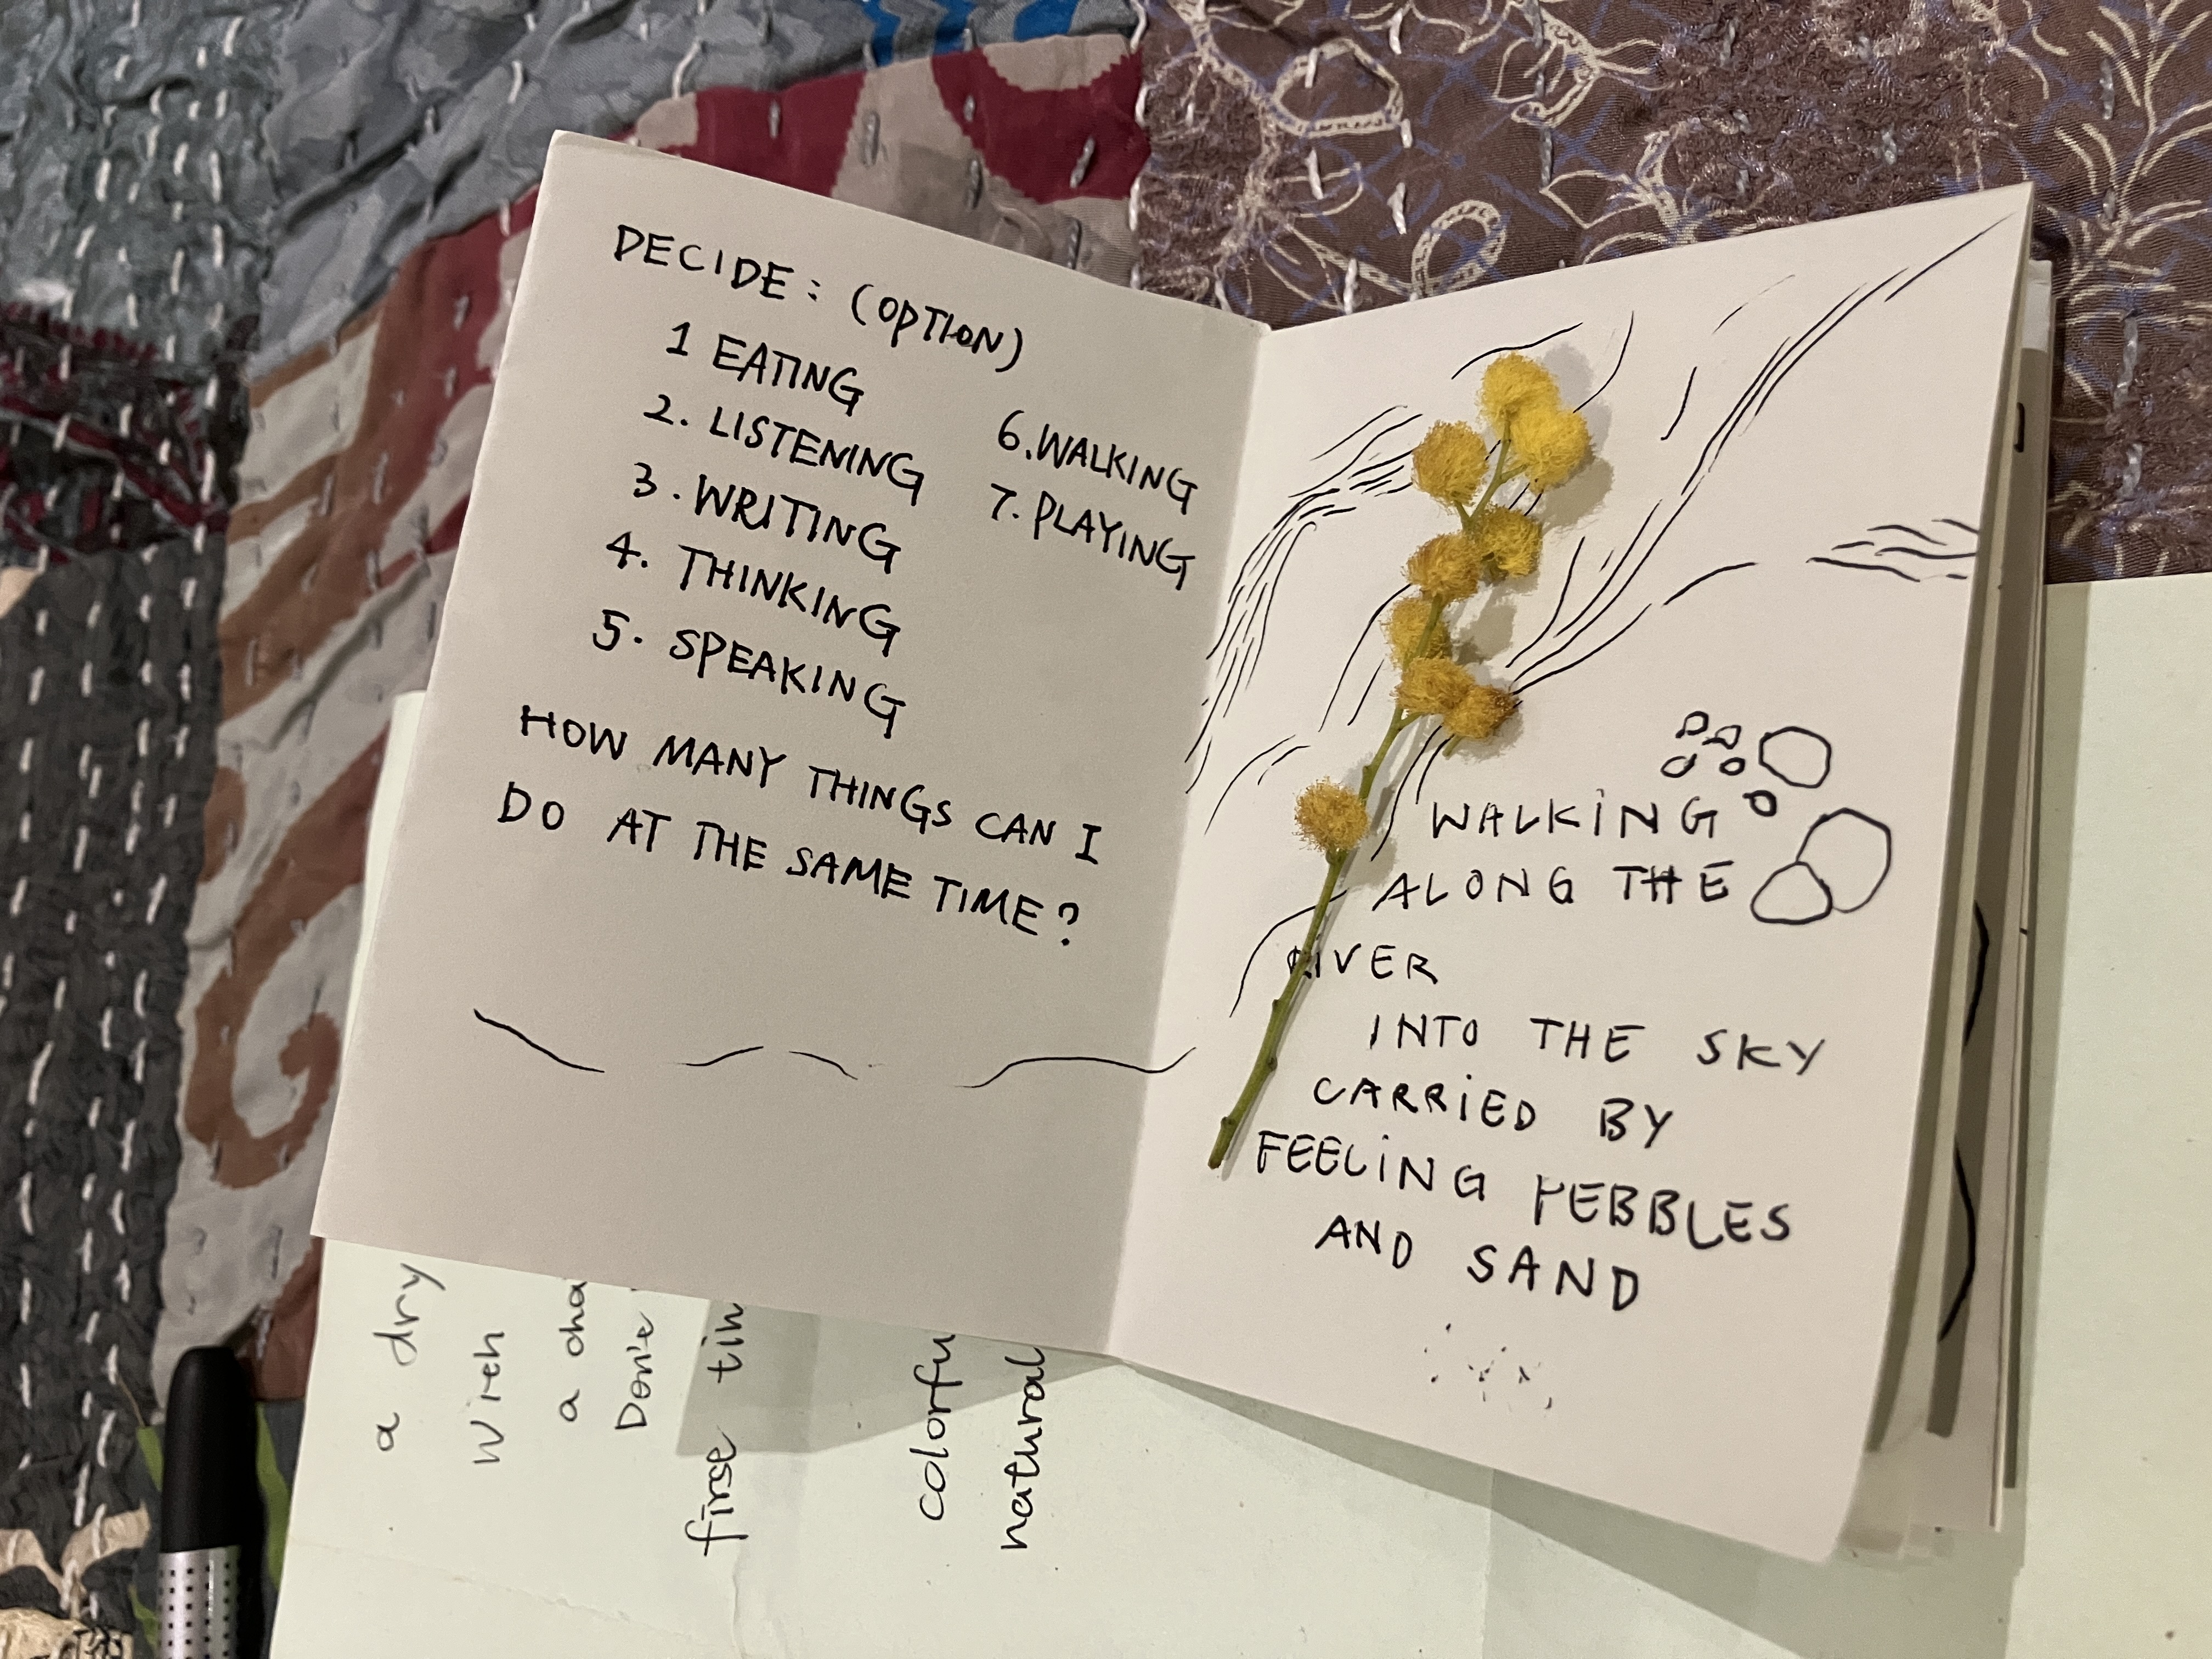 DECIDE: (OPTION)
1 EATING
2. LISTENING
3. WRITING
4. THINKING
5. SPEAKING
6. WALKING
7. PLAYING
HOW MANY THINGS CAN I
DO AT THE SAME TIME?
WALKING
ALONG THE
RIVER
INTO THE SKY
CARRIED BY
FEELING PEBBLES
AND SAND
a dry
a
first
natural